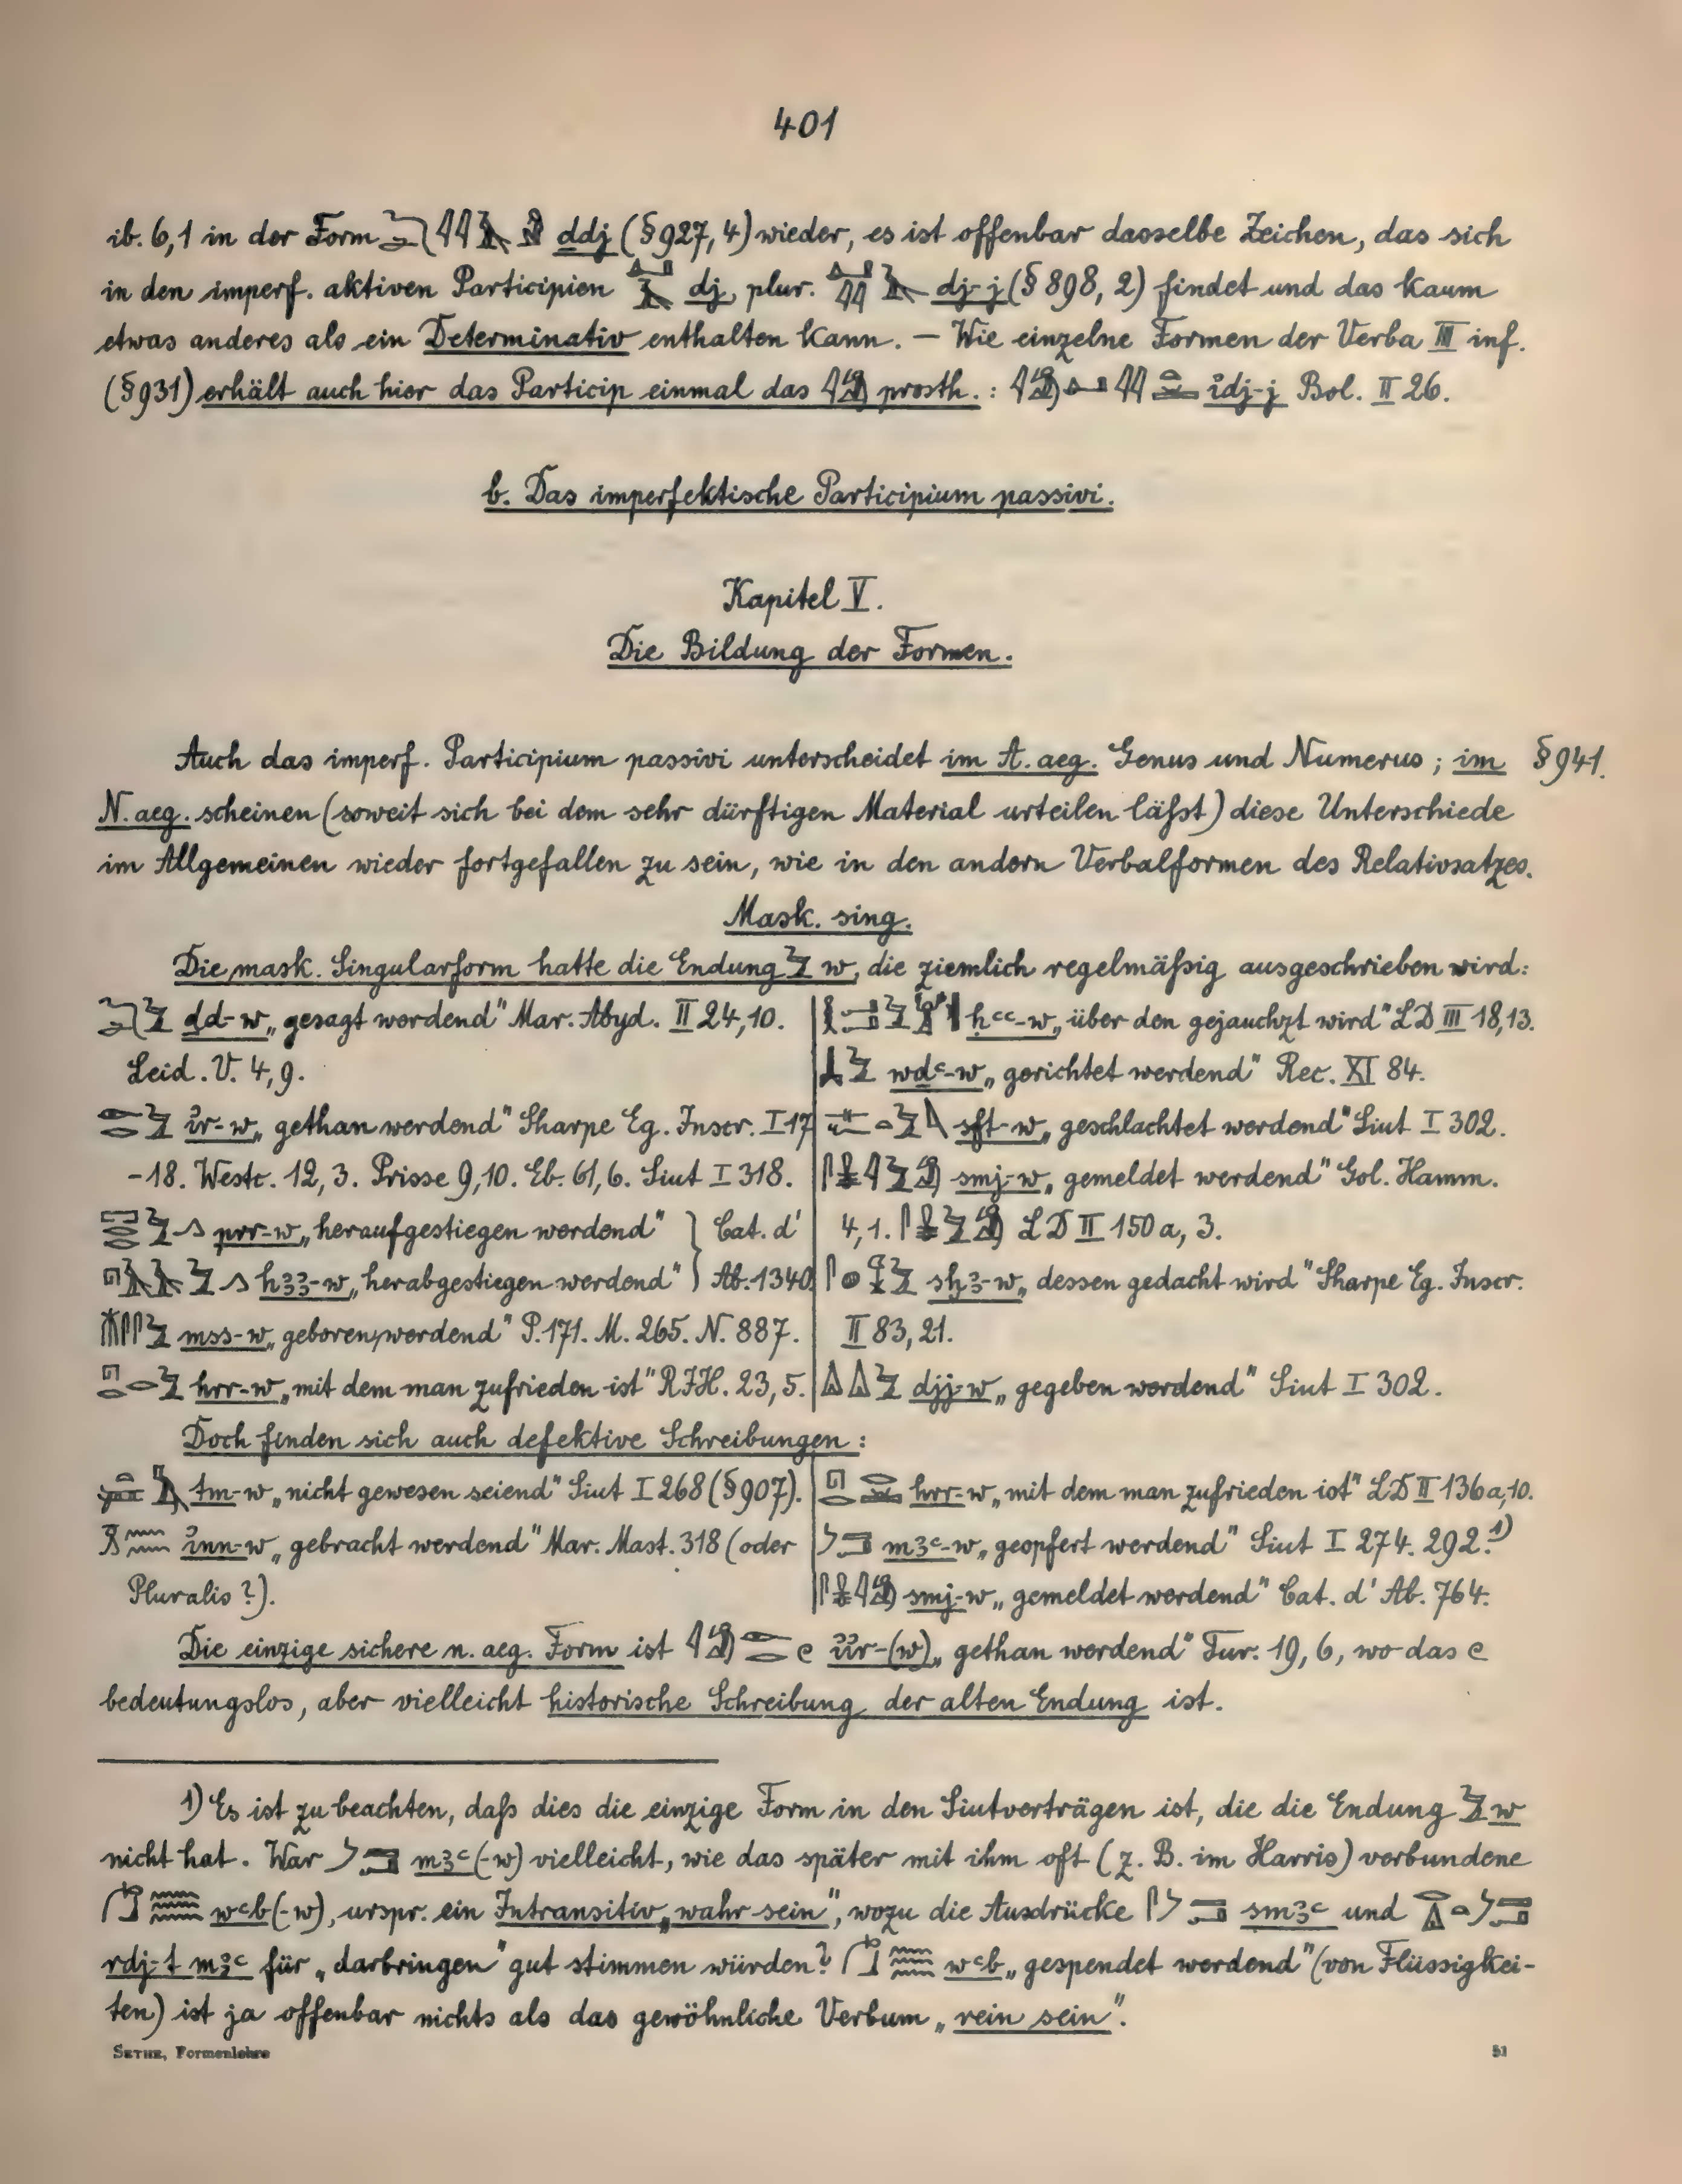 401
ib. 6,1 in der Form ddj (§927, 4) wieder, es ist offenbar dasselbe Zeichen, das sich
in den imperf. aktiven Participien dj, plur. dj-j (§ 898, 2) findet und das kaum
etwas anderes als ein Determinativ enthalten kann. — Wie einzelne Formen der Verba III inf.
(§931) erhält auch hier das Particip einmal das prosth. : idj-j Bol. II 26.
b. Das imperfektische Participium passivi.
Kapitel V.
Die Bildung der Formen.
Auch das imperf. Participium passivi unterscheidet im A. aeg. Genus und Numerus ; im §941.
N. aeg. scheinen (soweit sich bei dem sehr dürftigen Material urteilen läßt) diese Unterschiede
im Allgemeinen wieder fortgefallen zu sein, wie in den andern Verbalformen des Relativsatzes.
Mask. sing.
Die mask. Singularform hatte die Endung w, die ziemlich regelmäßig ausgeschrieben wird:
dd-w „gesagt werdend" Mar. Abyd. II 24,10.
Leid. V. 4,9.
ir-w „gethan werdend" Sharpe Eg. Inscr. I 17
-18. Westc. 12,3. Prisse 9,10. Eb. 61,6. Siut I 318.
prr-w „heraufgestiegen werdend" } Cat. d'
h33-w „herabgestiegen werdend" } Ab. 1340
mss-w „geboren werdend" P. 171. M. 265. N. 887.
hrr-w „mit dem man zufrieden ist" RIH. 23,5.
ḥꜥꜥ-w „über den gejauchzt wird" LD III 18,13.
wdꜥ-w „gerichtet werdend" Rec. XI 84.
sft-w „geschlachtet werdend" Siut I 302.
smj-w „gemeldet werdend" Gol. Hamm.
4,1. LD II 150a, 3.
sḫ3-w „dessen gedacht wird" Sharpe Eg. Inscr.
II 83,21.
djj-w „gegeben werdend" Siut I 302.
Doch finden sich auch defektive Schreibungen :
tm-w „nicht gewesen seiend" Siut I 268 (§907).
inn-w „gebracht werdend" Mar. Mast. 318 (oder
Pluralis ?).
hrr-w „mit dem man zufrieden ist" LD II 136a,10.
m3ꜥ-w „geopfert werdend" Siut I 274. 292.¹)
smj-w „gemeldet werdend" Cat. d' Ab. 764.
Die einzige sichere n. aeg. Form ist iir-(w) „gethan werdend" Tur. 19, 6, wo das
bedeutungslos, aber vielleicht historische Schreibung der alten Endung ist.
1) Es ist zu beachten, daß dies die einzige Form in den Siutverträgen ist, die die Endung w
nicht hat. War m3ꜥ(-w) vielleicht, wie das später mit ihm oft (z. B. im Harris) verbundene
wꜥb(-w), urspr. ein Intransitiv „wahr sein", wozu die Ausdrücke sm3ꜥ und
rdj-t m3ꜥ für „darbringen" gut stimmen würden? wꜥb „gespendet werdend" (von Flüssigkei-
ten) ist ja offenbar nichts als das gewöhnliche Verbum „rein sein".
SETHE, Formenlehre 51